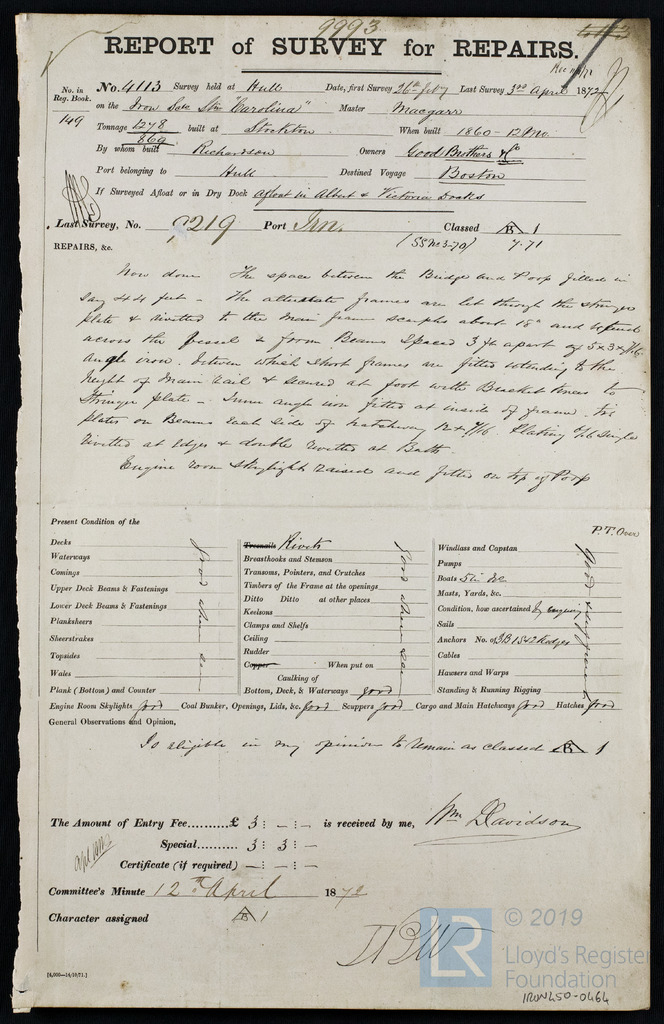 9993
REPORT of SURVEY for REPAIRS.
No. in Reg. Book. No. 4113 Survey held at Hull Date, first Survey 26th Feby Last Survey 3rd April 1872
149 on the Iron Scr Str "Carolina" Master Macgarr
Tonnage 1278 / 869 built at Stockton When built 1860-12 Mo.
By whom built Richardson Owners Good Brothers & Co
Port belonging to Hull Destined Voyage Boston
If Surveyed Afloat or in Dry Dock Afloat in Albert & Victoria Docks
Last Survey, No. 7219 Port Irn. Classed B 1
REPAIRS, &c. (SS No 3-70) 7.71
Now done The space between the Bridge and Poop filled in
say 44 feet - The alternate frames are let through the stringer
plate & rivetted to the main frame scarphs about 18" and extend
across the vessel & form Beams spaced 3 ft apart of 5 x 3 x 7/16
angle iron. between which short frames are fitted extending to the
height of Main rail & secured at foot with Bracket knees to
Stringer plate - Inner angle iron fitted at inside of frame. Tie
plates on Beams each side of hatchway 12 x 7/16 Plating 6/16 single
rivetted at edges & double rivetted at Butts.
Engine room skylight raised and fitted on top of Poop
P.T. Over
Present Condition of the
Decks good when seen
Waterways
Comings
Upper Deck Beams & Fastenings
Lower Deck Beams & Fastenings
Planksheers
Sheerstrakes
Topsides
Wales
Plank (Bottom) and Counter
Treenails Rivets good when seen
Breasthooks and Stemson
Transoms, Pointers, and Crutches
Timbers of the Frame at the openings
Ditto Ditto at other places
Keelsons
Clamps and Shelfs
Ceiling
Rudder
Copper When put on
Caulking of
Bottom, Deck, & Waterways good
Windlass and Capstan good
Pumps
Boats 5 in No
Masts, Yards, &c.
Condition, how ascertained by enquiry
Sails
Anchors No. of 3B 1S & 2 Kedges
Cables
Hawsers and Warps
Standing & Running Rigging
Engine Room Skylights good Coal Bunker, Openings, Lids, &c. good Scuppers good Cargo and Main Hatchways good Hatches good
General Observations and Opinion,
Is eligible in my opinion to remain as classed B 1
The Amount of Entry Fee.......... £ 3 : - : - is received by me, Wm Davidson
Special.......... 3 : 3 : -
Certificate (if required) - : - : -
Committee's Minute 12th April 1872
Character assigned B 1
[4,000-14/10/71.]
LR © 2019
Lloyd's Register
Foundation
IRON450-0464